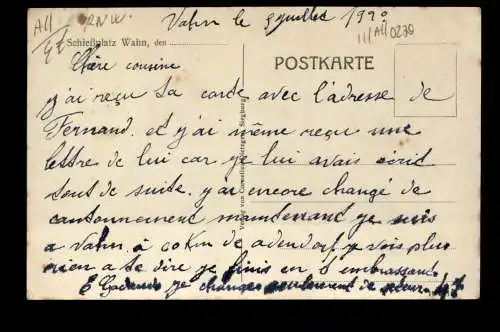 A11 RNW.
Vahn le 9 juillet 1920
111 A11 0230
Schießplatz Wahn, den
POSTKARTE
Chère cousine
j'ai reçu ta carte avec l'adresse de
Fernand. et j'ai même reçu une
lettre de lui car je lui avais écrid
tout de suite. j'ai encore changé de
cantonnement maintenant je suis
a Vahn. à 20 Km de je vois plus
rien a te dire je finis en t'embrassant
je change seulement de
Verlag von Siegburg